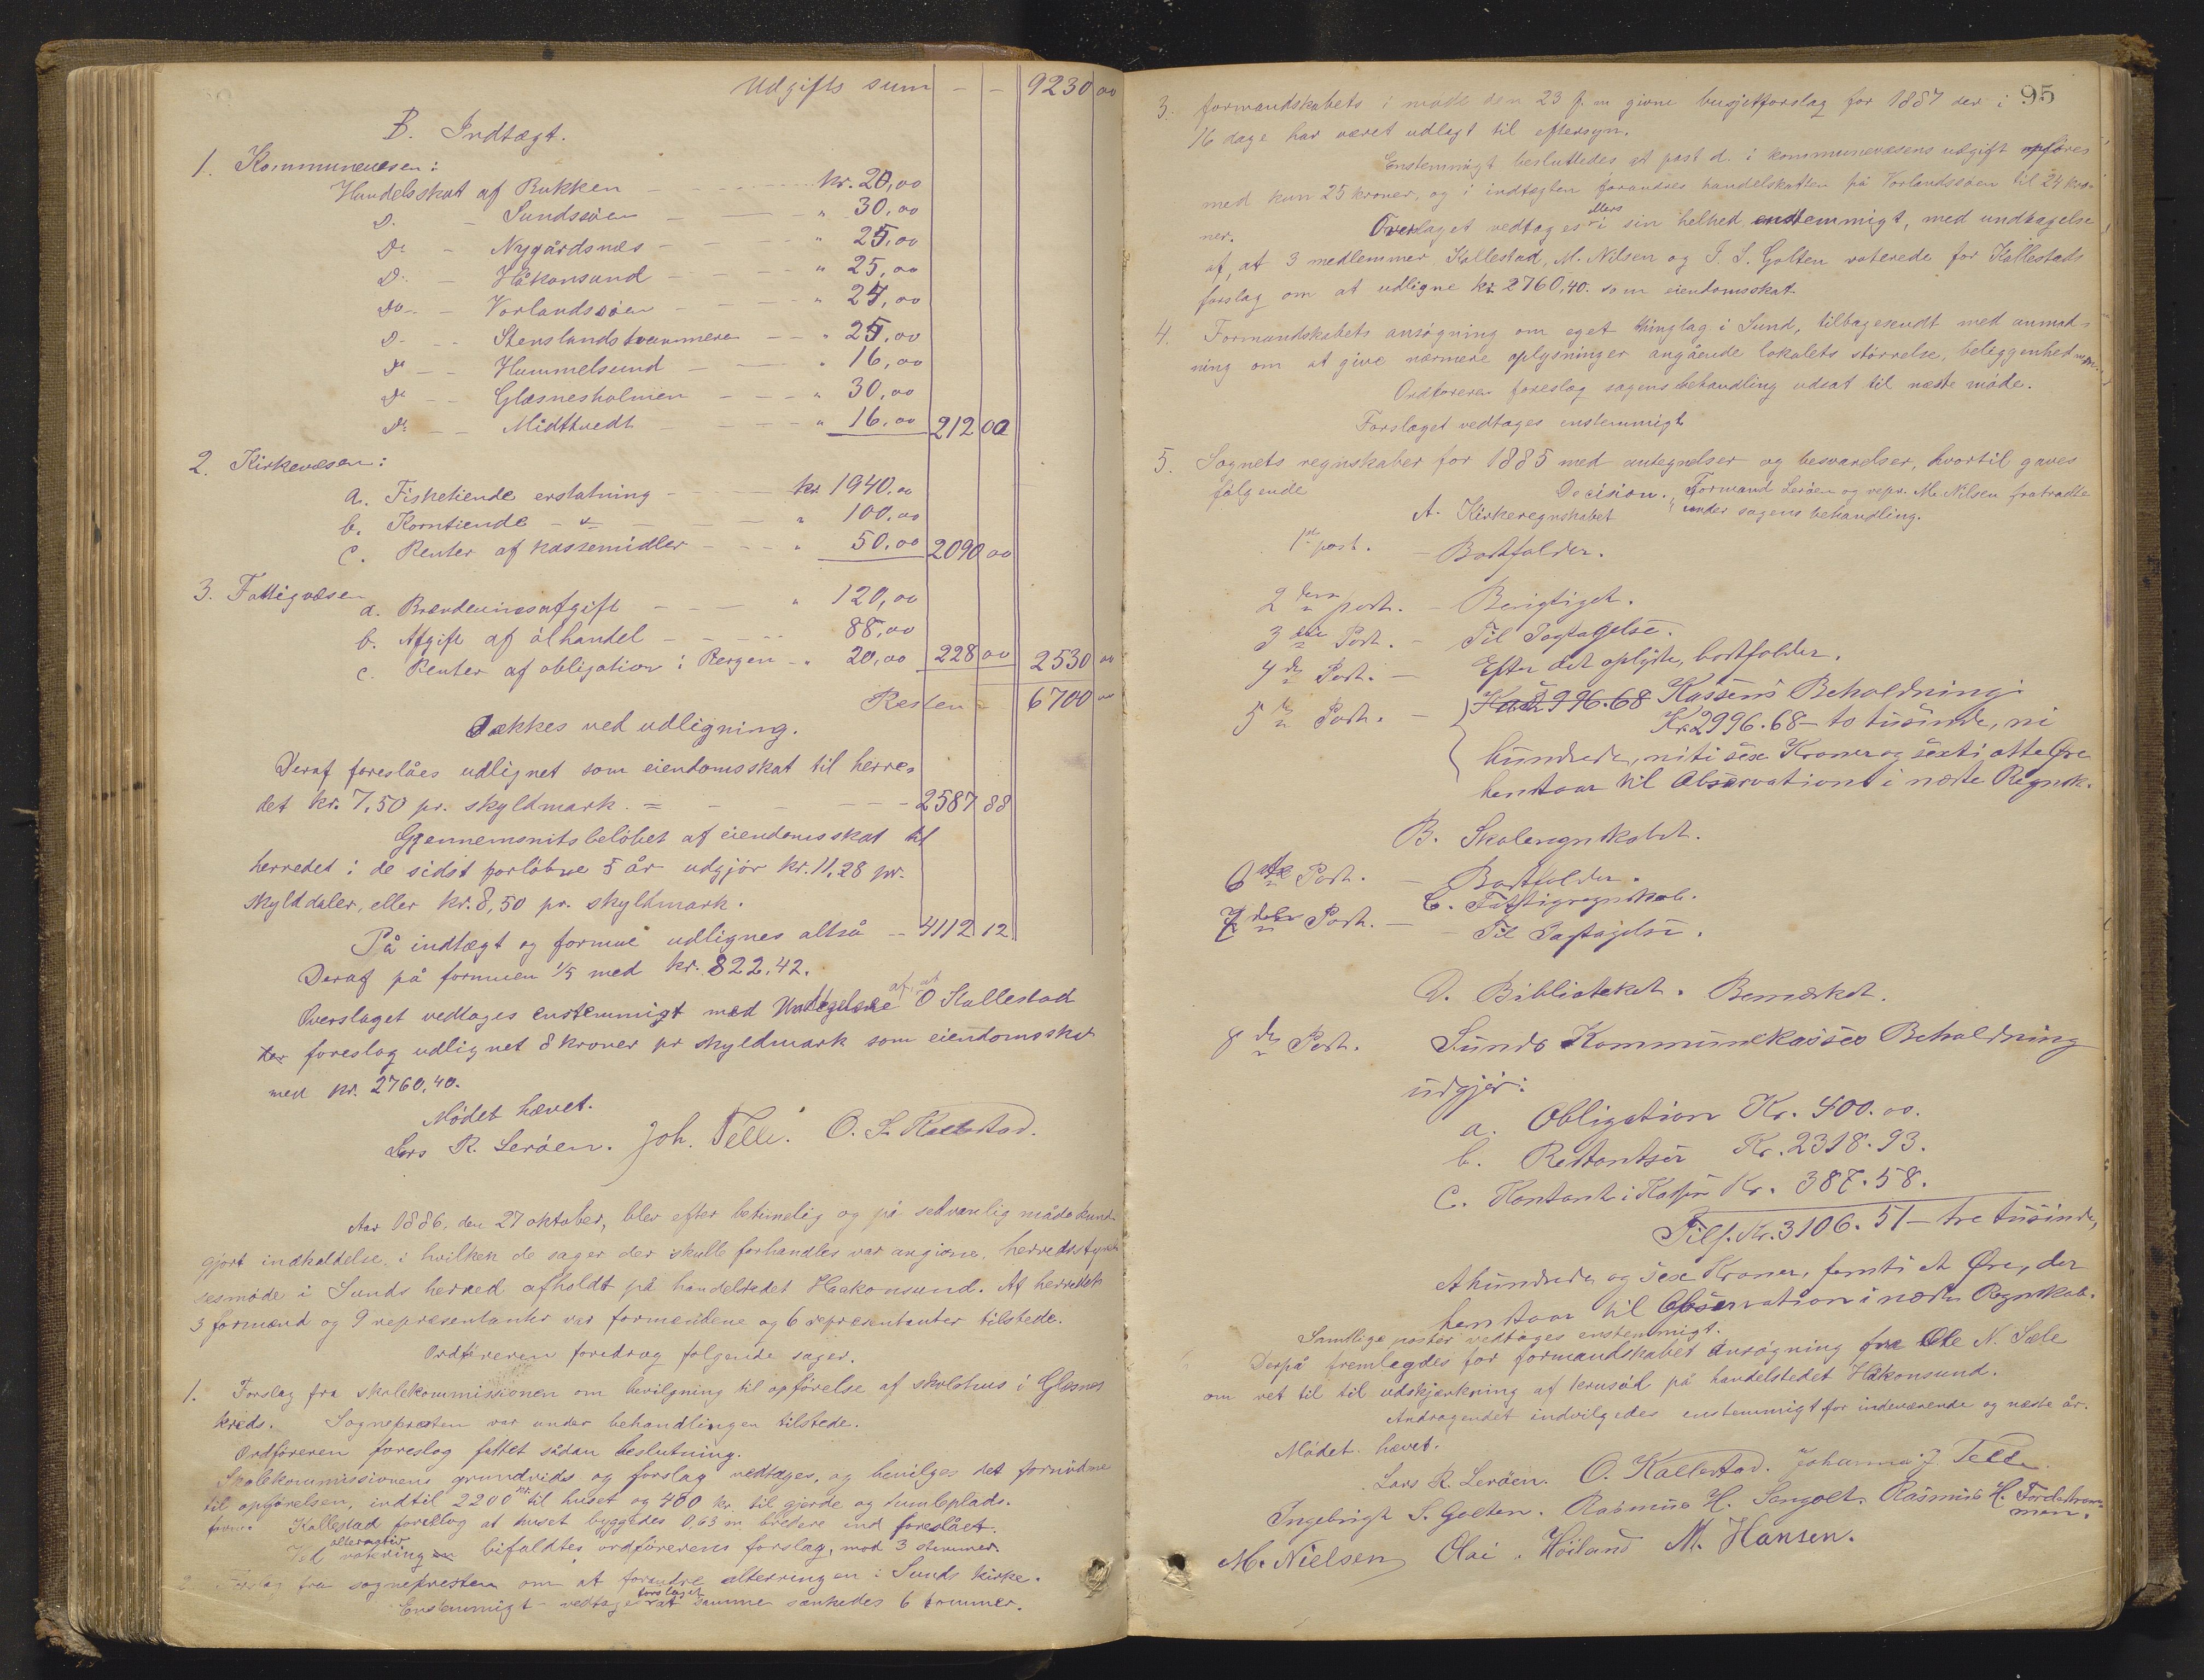 Udgifts sum - - 9230 00
B. Indtægt.
1. Kommunevæsen:
Handelsskat af Bukken - - - kr. 20,00
Do. - Sundssöen - - - " 30,00
Do - Nygårdsnæs - - - " 25,00
Do - Håkonsund - - - " 25,00
Do - Vorlandssöen - - - " 24,00
Do - Stenslandstvammene - - " 25,00
Do - Hummelsund - - " 16,00
Do - Glæsnesholmen - - - " 30,00
Do - Midttvedt - - - " 16,00 212 00
2. Kirkevæsen:
a. Fisketiende erstatning - - - kr 1940,00
b. Korntiende - " - - - " 100,00
c. Renter af kassemidler - - - " 50,00 2090 00
3. Fattigvæsen
a. Brændevinsafgift - - - " 120,00
b. Afgift af ölhandel - - - 88,00
c. Renter af obligation i Bergen - " 20,00 228 00 2530 00
Resten - 6700 00
dækkes ved udligning.
Deraf foreslåes udlignet som eiendomsskat til herre-
det kr. 7,50 pr. skyldmark. = - - - - 2587 88
Gjennemsnitsbelöbet af eiendomsskat til
herredet i de sidst forlöbne 5 år udgjör kr. 11,28 pr.
skylddaler, eller kr. 8,50 pr. skyldmark.
På indtægt og formue udlignes altså - 4112 12
Deraf på formuen 1/5 med kr. 822,42.
Overslaget vedtages enstemmigt med Undtagelse af, at O Kallestad
der foreslog udlignet 8 kroner pr skyldmark som eiendomsskat
med kr. 2760,40.
Mödet hævet.
Lars R. Leröen. Joh. Telle. O. L. Kallestad.
Aar 1886, den 27 oktober, blev efter betimelig og på sedvanlig måde kund-
gjort indkaldelse, i hvilken de sager der skulle forhandles var angivne, herredssty-
resmöde i Sunds herred afholdt på handelstedet Haakonsund. Af herredets
3 formænd og 9 repræsentanter var formændene og 6 repræsentanter tilstede.
Ordföreren foredrog fölgende sager.
1. Forslag fra skolekommissionen om bevilgning til opförelse af skolehus i Glesnes
kreds. Sognepræsten var under behandlingen tilstede.
Ordföreren foreslog fattet sådan beslutning.
Skolekommissionens grundrids og forslag vedtages, og bevilges det fornödne
til opförelsen, indtil 2200 kr. til huset og 400 kr. til gjerde og tumleplads.
form. Kallestad foreslog at huset byggedes 0,63 m bredere end foreslået.
Ved alternativ votering bifaldtes ordförerens forslag, mod 3 stemmer.
2. Forslag fra sognepresten om at forandre alterringen i Sunds kirke.
Enstemmigt vedtages forslaget at samme sænkedes 6 tommer.
95
3. formandskabets i möde den 23 f. m givne busjetforslag for 1887 der i
16 dage har været udlagt til eftersyn.
Enstemmigt besluttedes at post d. i kommunevæsens udgift opföres
med kun 25 kroner, og i indtægten forandres handelskatten på Vorlandssöen til 24 kro-
ner. Overslaget vedtoges ellers i sin helhed enstemmigt, med undtagelse
af, at 3 medlemmer Kallestad, M. Nilsen og I. S. Golten voterede for Kallestads
forslag om at udligne kr. 2760,40. som eiendomsskat.
4. Formandskabets ansögning om eget thinglag i Sund, tilbagesendt med anmod-
ning om at give nærmere oplysninger angående lokalets störrelse, beliggenhed m.m.
Ordföreren foreslog sagens behandling udsat til næste möde.
Forslaget vedtages enstemmigt
5. Sognets regnskaber for 1885 med antegnelser og besvarelser, hvortil gaves
fölgende Decision. Formand Leröen og repr. M. Nilsen fratrådte
A. Kirkeregnskabet under sagens behandling.
1ste post. - Bortfalder.
2den post. - Berigtiget.
3die Post. - Til Iagttagelse.
4de Post. - Efter det oplyste, bortfalder.
5te Post. - Kr. 2996.68 Kassens Beholdning:
Kr. 2996.68 - to tusinde, ni
hundrede, nitisex Kroner og sexti otte Öre
henstaar til Observation i næste Regnsk.
B. Skoleregnskabet.
6te Post. - Bortfalder.
C. Fattigregnskab.
7de Post. - Til Iagttagelse.
D. Bibliotheket. Bemærket.
8de Post. Sunds Kommunekasses Beholdning
udgjör:
a. Obligation Kr. 400.00.
b. Restantser Kr. 2318.93.
c. Kontant i Kassen Kr. 387.58.
Tils. Kr. 3106.51 - tre tusinde,
et hundrede og sex Kroner, femti et Öre, der
henstaar til Observation i næste Regnskab.
Samtlige poster vedtages enstemmigt.
Derpå fremlagdes for formandskabet Ansögning fra Ole N. Sæle
om ret til til udskjænkning af krusöl på handelstedet Håkonsund.
Andragendet indvilgedes enstemmigt for indeværende og næste år.
Mödet hævet.
Lars R. Leröen. O. Kallestad. Johannes J. Telle
Ingebrigt S. Golten. Rasmus H. Sangolt. Rasmus H.
M. Nielsen Olai. Höiland M. Hansen.